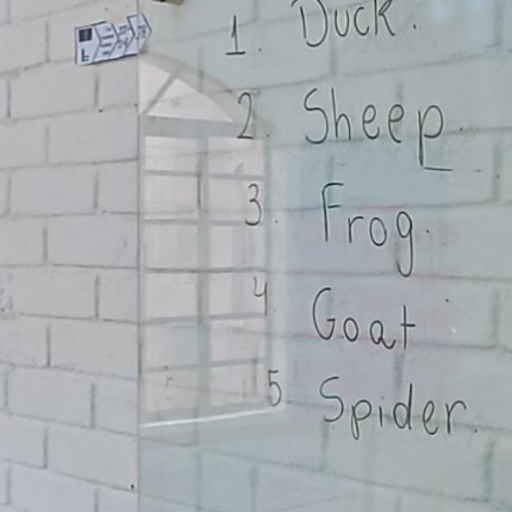 1. Duck.
2. Sheep.
3. Frog.
4 Goat
5 Spider.